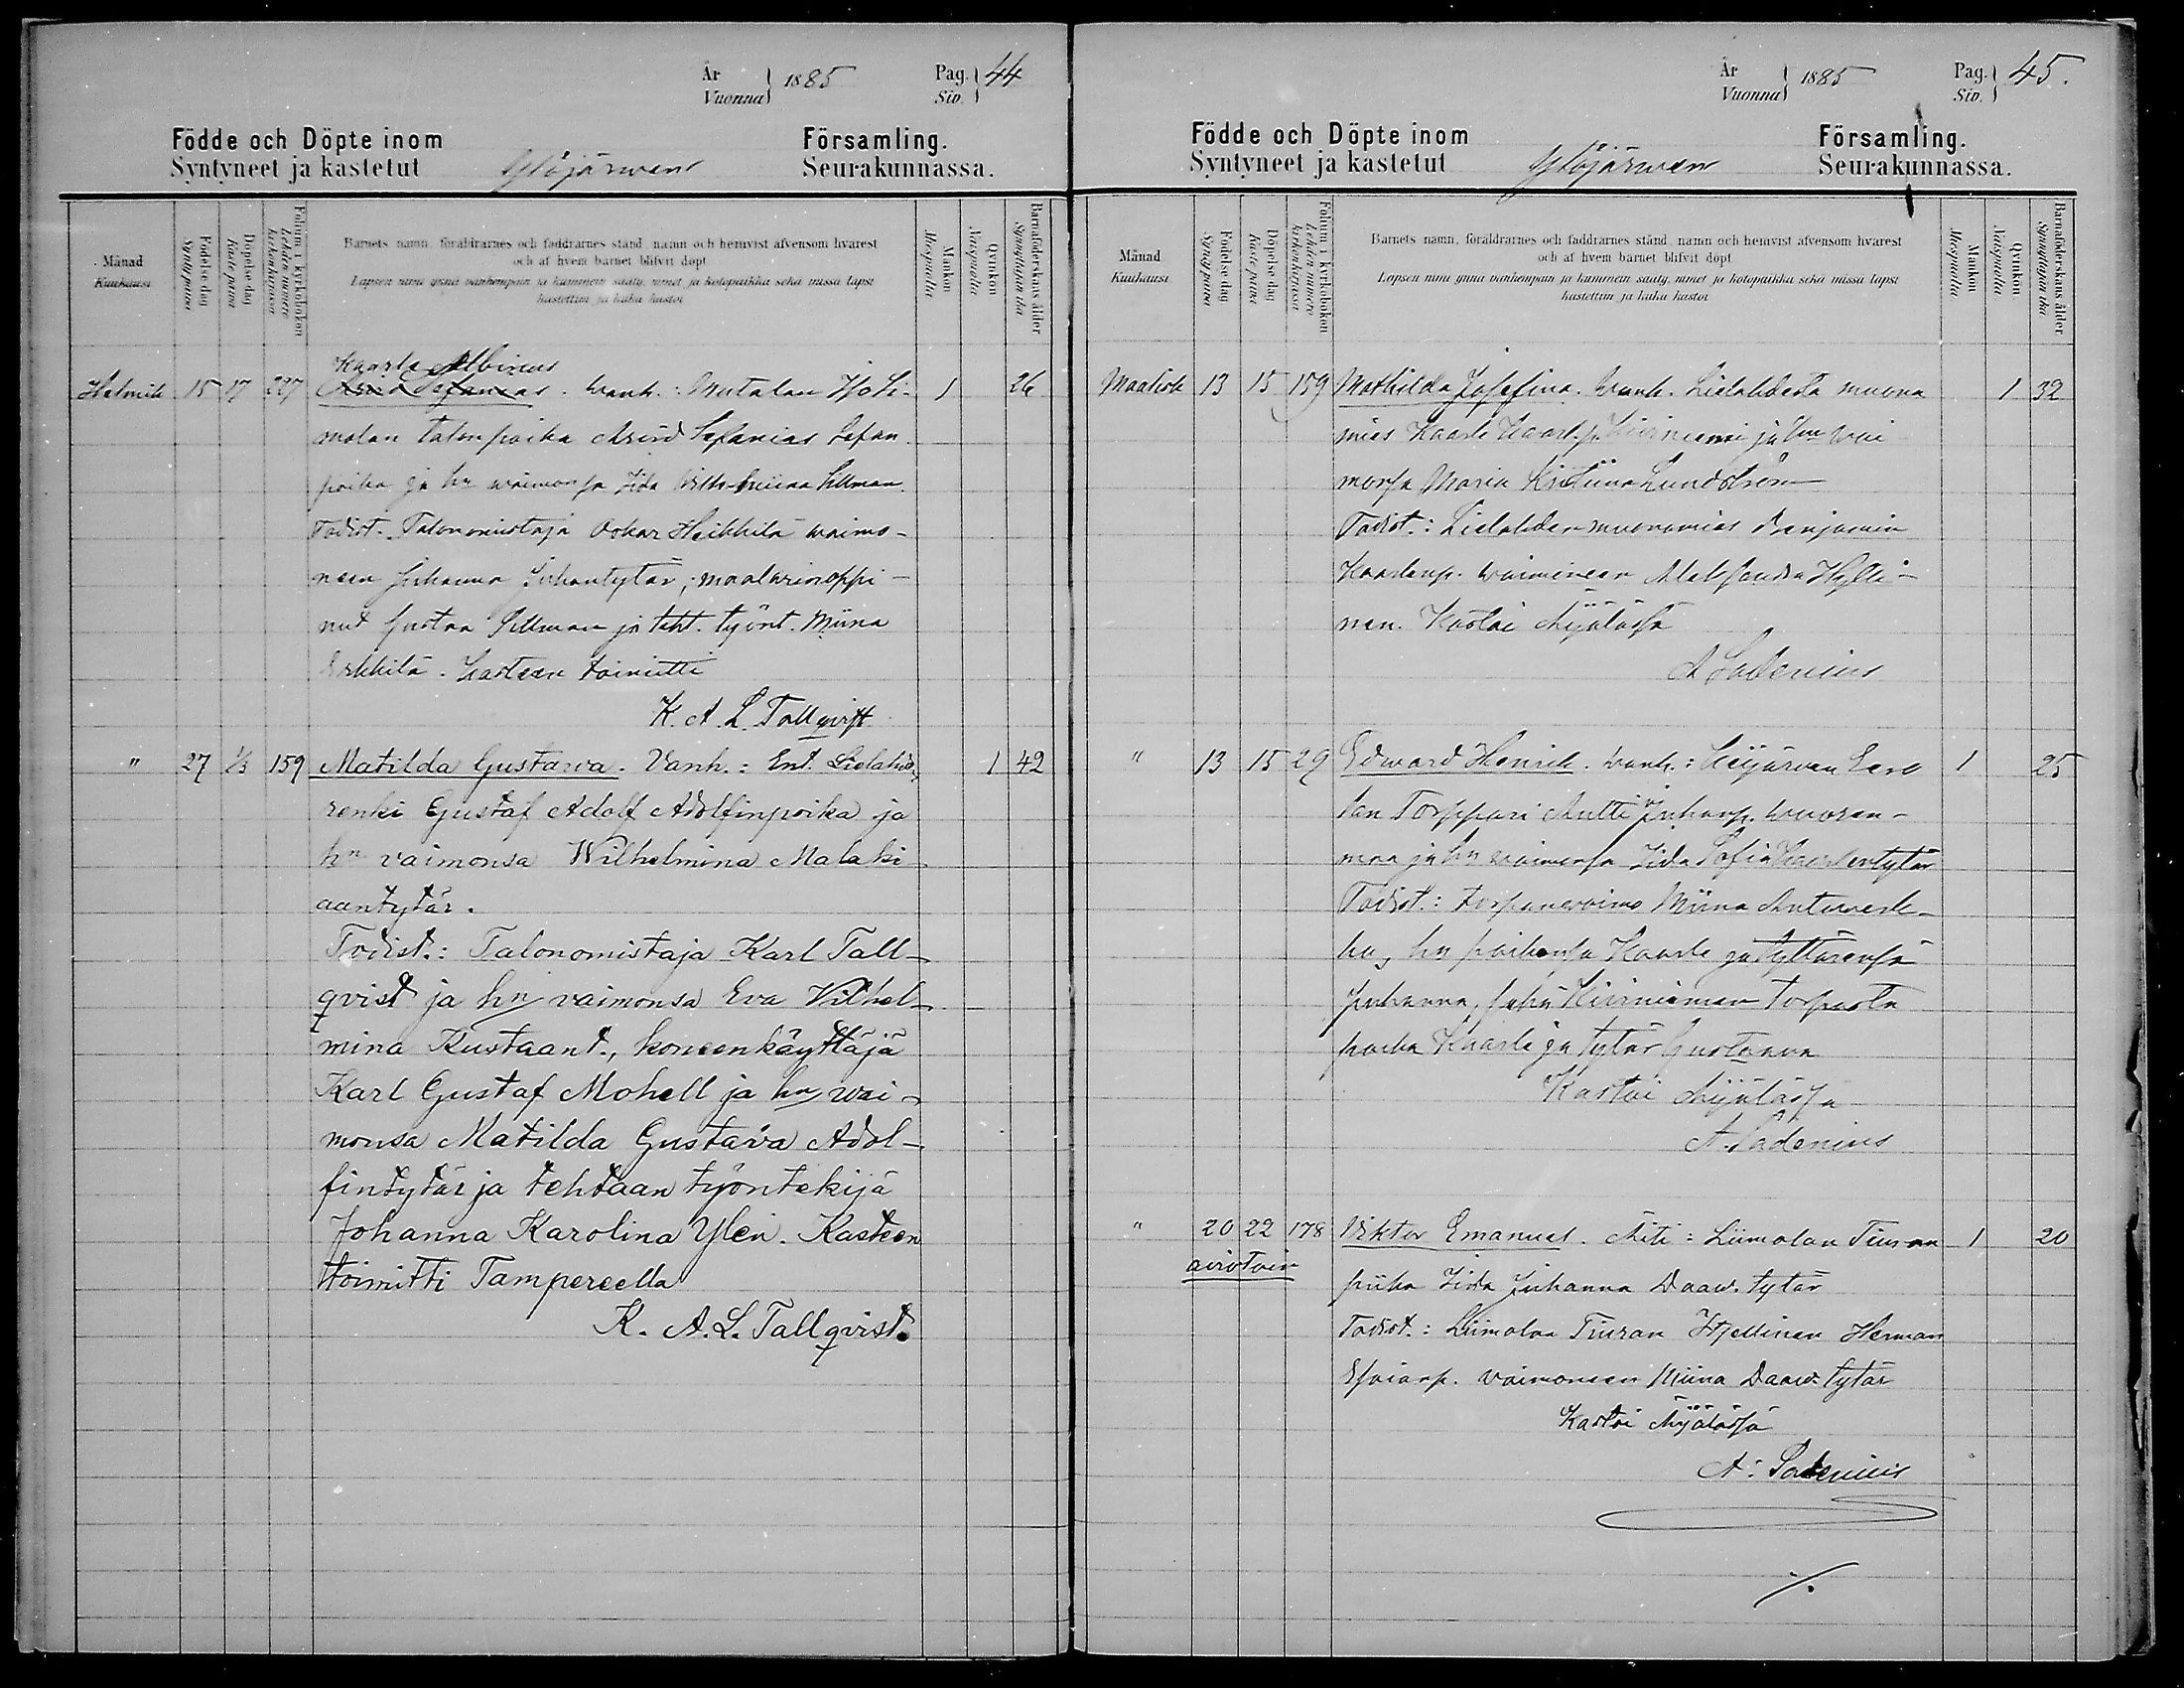 År
Vuonna } 1885 Pag.
Siv. } 44
Födde och Döpte inom Församling.
Syntyneet ja kastetut Ylöjärwen Seurakunnassa.
Månad
Kuukausi
Födelse dag
Syntypäivä
Döpelse dag
Kaste päivä
Folium i kyrkoboken
Lehden numero
kirkonkirjassa
Barnets namn, föräldrarnes och faddrarnes stånd, namn och hemvist äfvensom hvarest
och af hvem barnet blifvit döpt
Lapsen nimi ynnä vanhempain ja kummein sääty, nimet ja kotopaikka sekä missä lapsi
kastettiin ja kuka kastoi
Mankön
Miespuolia
Qvinkön
Vaispuolia
Barnaföderskans ålder
Synnyttäjän ikä
Kaarlo Albinus
Helmik 15 17 227 Sefanias. Wanh.: Mutalan 1 26
molan talonpoika Arvid Sefanias Sefan.
poika ja hn waimonsa Iida Sillman.
Todist. Talonomistaja Oskar Heikkilä waimo-
neen Juhanna Juhontytär, maalarinoppi-
nut Gustaa Sillman ja teht. työnt. Miina
Erkkilä. Kasteen toimitti
K. A. L. Tallqvist
" 27 1/3 159 Matilda Gustava. Vanh.: Ent. Lielahd. 1 42
renki Gustaf Adolf Adolfinpoika ja
hn vaimonsa Wilhelmina Malaki
aantytär.
Todist.: Talonomistaja Karl Tall-
qvist ja hn vaimonsa Eva Vilhel-
mina Kustaant., koneenkäyttäjä
Karl Gustaf Mohell ja hn wai-
monsa Matilda Gustava Adol-
fintytär ja tehtaan työntekijä
Johanna Karolina Ylén. Kasteen
toimitti Tampereella
K. A. L. Tallqvist.
År
Vuonna } 1885 Pag.
Siv. } 45.
Födde och Döpte inom Församling.
Syntyneet ja kastetut Ylöjärwen Seurakunnassa.
Månad
Kuukausi
Födelse dag
Syntypäivä
Döpelse dag
Kaste päivä
Folium i kyrkoboken
Lehden numero
kirkonkirjassa
Barnets namn, föräldrarnes och faddrarnes stånd, namn och hemvist äfvensom hvarest
och af hvem barnet blifvit döpt
Lapsen nimi ynnä vanhempain ja kummein sääty, nimet ja kotopaikka sekä missä lapsi
kastettiin ja kuka kastoi
Mankön
Miespuolia
Qvinkön
Vaispuolia
Barnaföderskans ålder
Synnyttäjän ikä
Maalisk 13 15 159 Mathilda Josefina. Wanh. Lielahdesta muona 1 32
mies Kaarle Kaarl.p. Kiirniemi ja hn wai
monsa Maria Kristiina Lundström
Todist.: Lielahden muonamies Benjamin
Kaarlenp. waimineen Aleksandra Hylli-
nen. Kastoi Äijälässä
A Sadenius
" 13 15 29 Edward Henrik. wanh.: Keijärwen Eero 1 25
lan Torppari Antti Juhanp. wuoren-
maa ja hn waimonsa Iida Sofia Kaarlentytär
Todist.: torpanwaimo Miina
ha, hn poikansa Kaarle ja tyttärensä
Juhanna, Kiirniemen torpasta
poika Kaarle ja tytär Gustaava
Kastoi Äijälässä
A. Sadenius
" 20 22 178 Viktor Emanuel. Äiti: Liimolan Tiuran 1 20
aviotoin piika Iida Juhanna Daaw. tytär
Todist.: Liimolan Tiuran Itsellinen Herman
Esaianp. vaimoneen Miina Daaw. tytär
Kastoi Äijälässä
A. Sadenius
./.